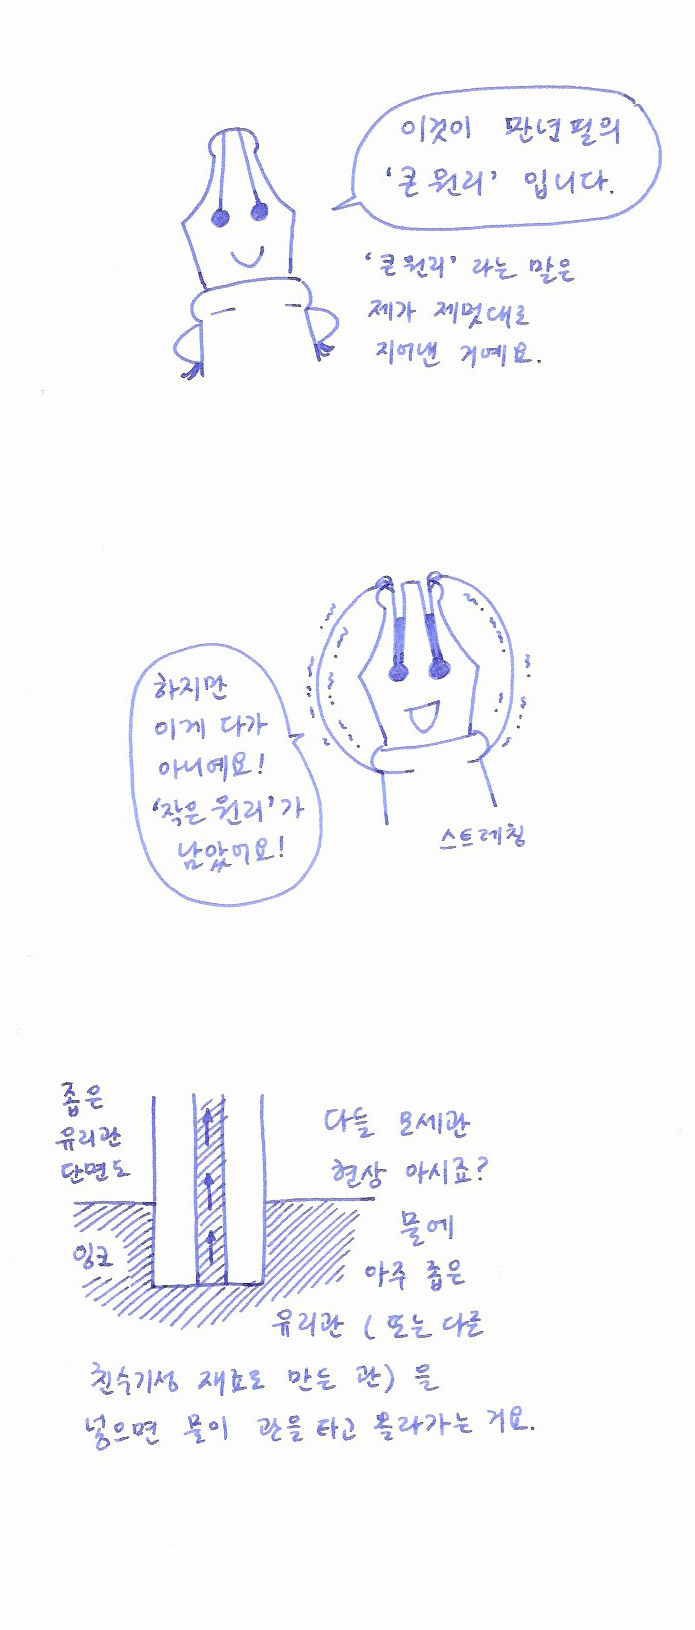 이것이 만년필의
'큰 원리' 입니다.
'큰 원리' 라는 말은
제가 제멋대로
지어낸 거예요.
하지만
이게 다가
아니예요!
'작은 원리'가
남았어요!
스트레칭
좁은
유리관
단면도
잉크
다들 모세관
현상 아시죠?
물에
아주 좁은
유리관 (또는 다른
친수기성 재료로 만든 관)을
넣으면 물이 관을 타고 올라가는 거요.